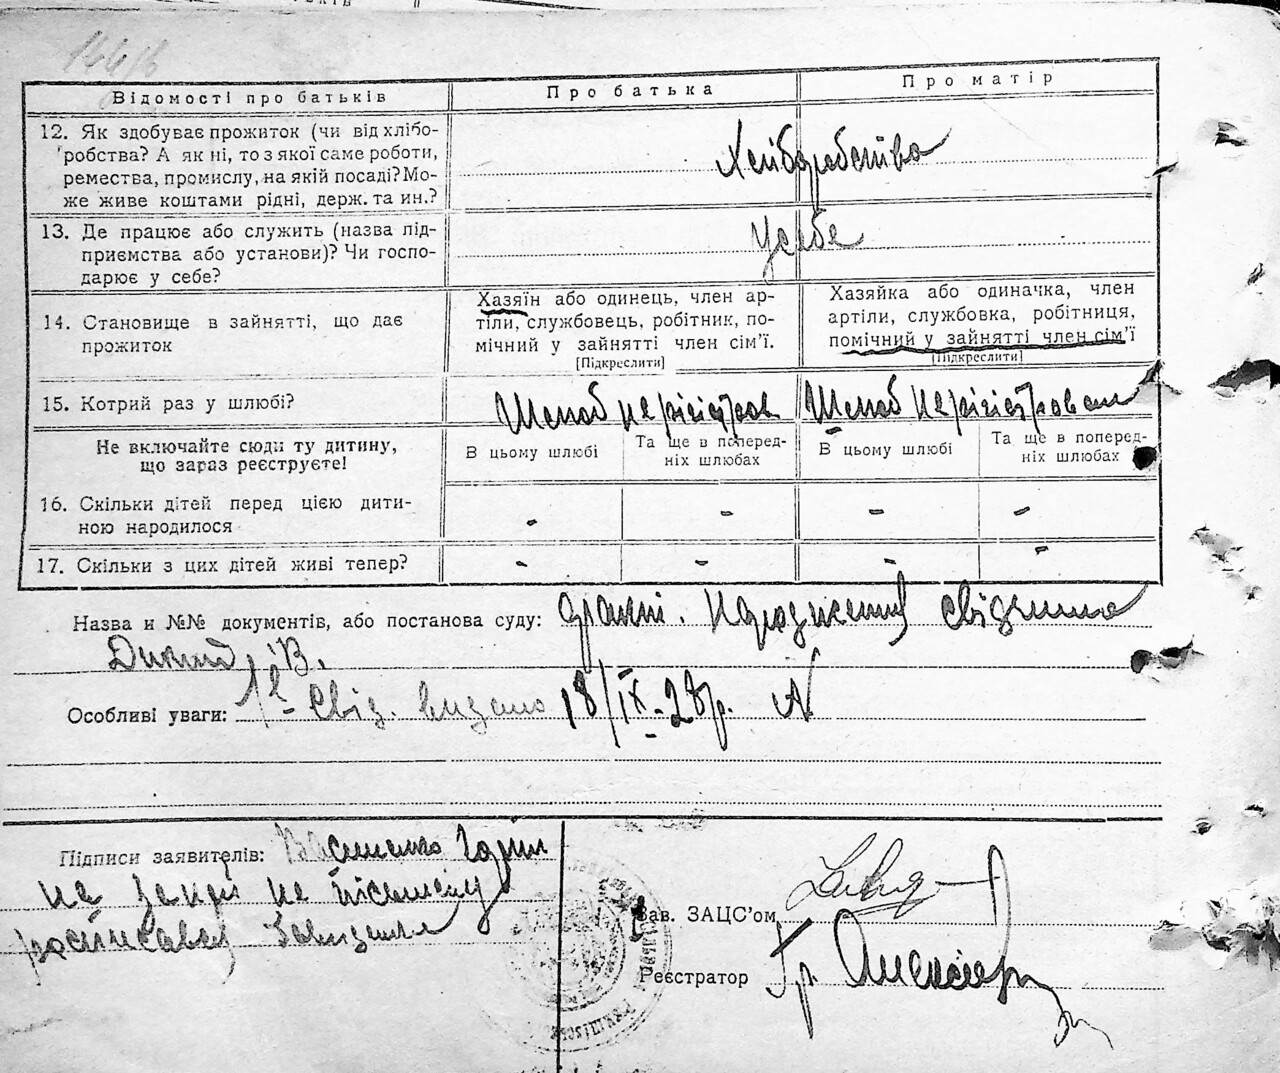 Відомості про батьків
Про батька
Про матір
12. Як здобуває прожиток (чи від хлібо-
робства? А як ні, то з якої саме роботи,
ремества, промислу, на якій посаді? Мо-
же живе коштами рідні, держ. та ин.?
Хліборобство
13. Де працює або служить (назва під-
приємства або установи)? Чи госпо-
дарює у себе?
У себе
14. Становище в зайнятті, що дає
прожиток
Хазяїн або одинець, член ар-
тіли, службовець, робітник, по-
мічний у зайнятті член сім'ї.
[Підкреслити]
Хазяйка або одиначка, член
артіли, службовка, робітниця,
помічний у зайнятті член сім'ї
[Підкреслити]
15. Котрий раз у шлюбі?
Шлюб не
Шлюб не
Не включайте сюди ту дитину,
що зараз реєструєте!
В цьому шлюбі
Та ще в поперед-
ніх шлюбах
В цьому шлюбі
Та ще в поперед-
ніх шлюбах
16. Скільки дітей перед цією дити-
ною народилося
- - - -
17. Скільки з цих дітей живі тепер?
- - - -
Назва и №№ документів, або постанова суду:
В.
Особливі уваги: Свід. видано 18/IX-28р.
Підписи заявителів:
не
Зав. ЗАЦС'ом
Реєстратор